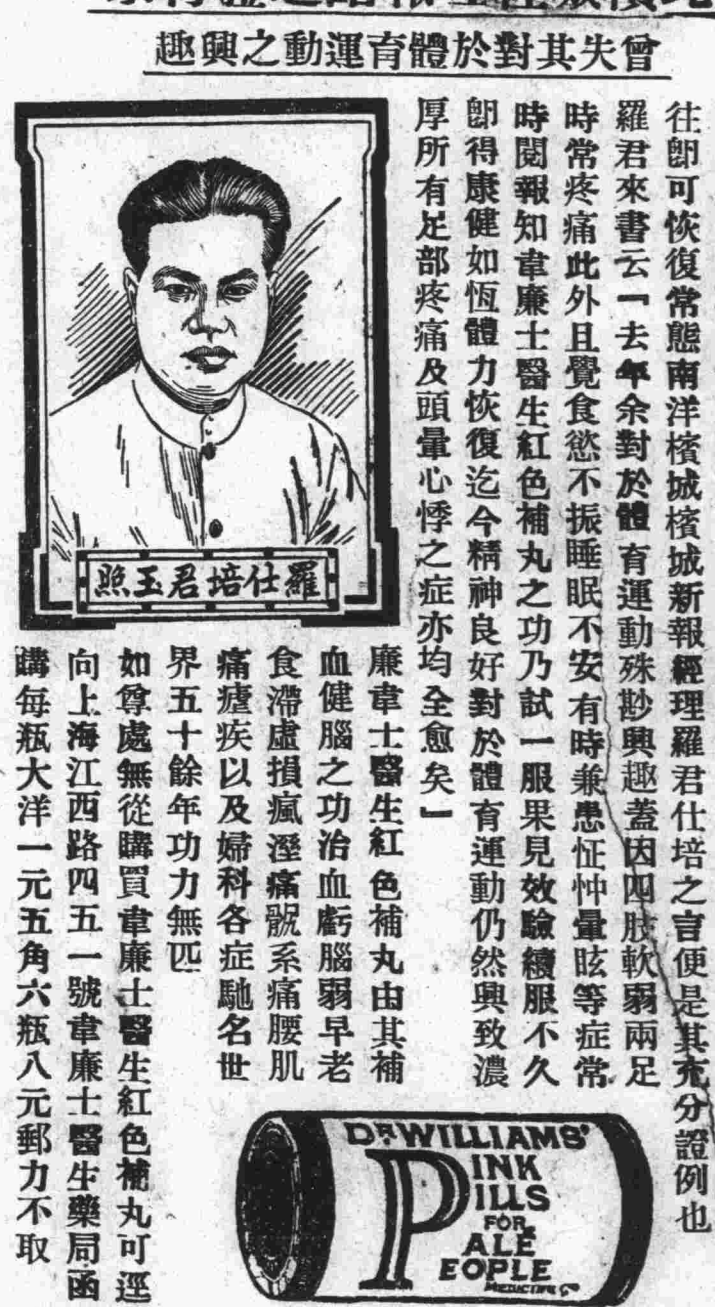 曾失其對於體育運動之興趣
往卽可恢復常態南洋檳城檳城新報經理羅君仕培之言便是其充分證例也
羅君來書云「去年余對於體育運動殊尠興趣蓋因四肢軟弱兩足
時常疼痛此外且覺食慾不振睡眠不安有時兼患怔忡暈眩等症常
時閱報知韋廉士醫生紅色補丸之功乃試一服果見效驗續服不久
卽得康健如恆體力恢復迄今精神良好對於體育運動仍然興致濃
厚所有足部疼痛及頭暈心悸之症亦均全愈矣」
羅仕培君玉照
廉韋士醫生紅色補丸由其補
血健腦之功治血虧腦弱早老
食滯虛損瘋溼痛骽系痛腰肌
痛瘧疾以及婦科各症馳名世
界五十餘年功力無匹
如尊處無從購買韋廉士醫生紅色補丸可逕
向上海江西路四五一號韋廉士醫生藥局函
購每瓶大洋一元五角六瓶八元郵力不取
DR WILLIAMS'
PINK
PILLS
FOR
PALE
PEOPLE
MEDICINE Co